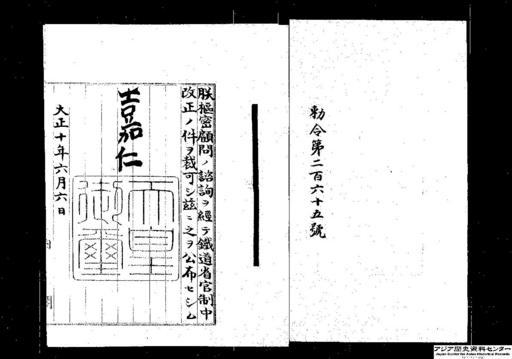 勅令第二百六十五號
朕樞密顧問ノ諮詢ヲ經テ鐵道省官制中
改正ノ件ヲ裁可シ玆ニ之ヲ公布セシム
嘉仁
天皇
御璽
大正十年六月六日
アジア歴史資料センター
Japan Center for Asian Historical Records